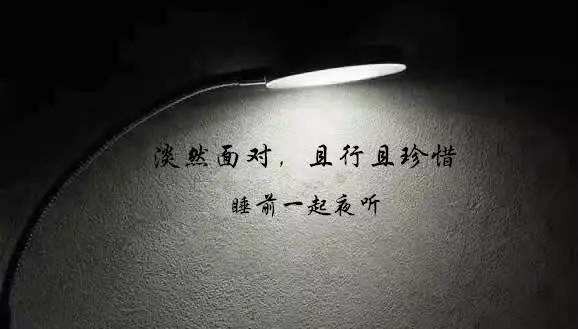 淡然面对，且行且珍惜
睡前一起夜听